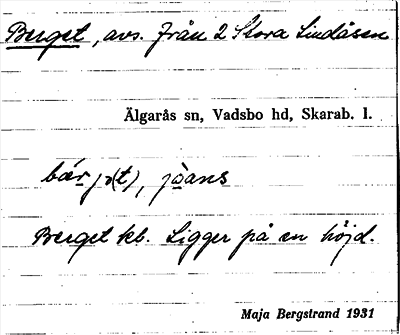 Berget, avs. från 2 Stora Lindåsen
Älgarås sn, Vadsbo hd, Skarab. l.
Berget kb. Ligger på en höjd.
Maja Bergstrand 1931